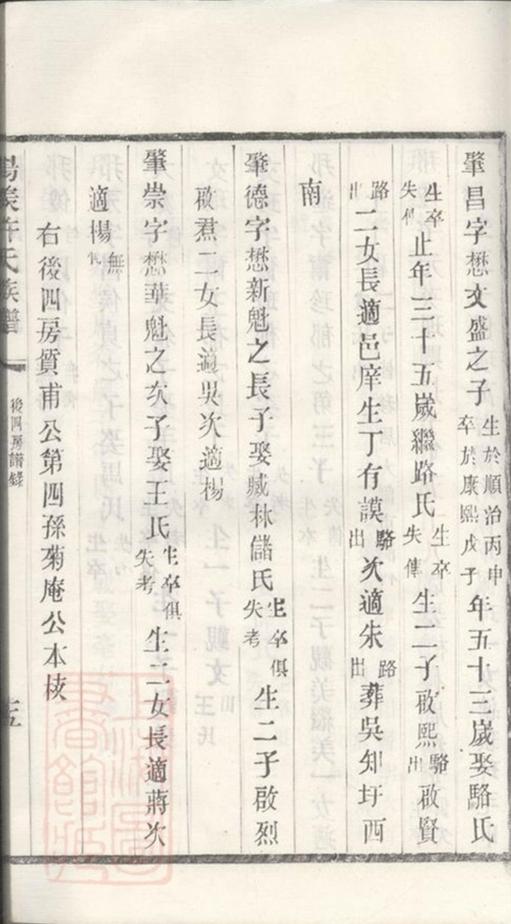 肇昌字懋文盛之子生於順治丙申卒於康熙戊子年五十三歲娶駱氏
生卒失傳止年三十五歲繼路氏生卒失傳生二子啟熙駱出啟賢
路出二女長適邑庠生丁有謨駱出次適朱路出葬吳知圩西
南
肇德字懋新魁之長子娶臧林儲氏生卒俱失考生二子啟烈
啟焄二女長適吳次適楊
肇崇字懋華魁之次子娶王氏生卒俱失考生二女長適蔣次
適楊無傳
右後四房質甫公第四孫菊庵公本枝
氏族譜
後四房譜錄